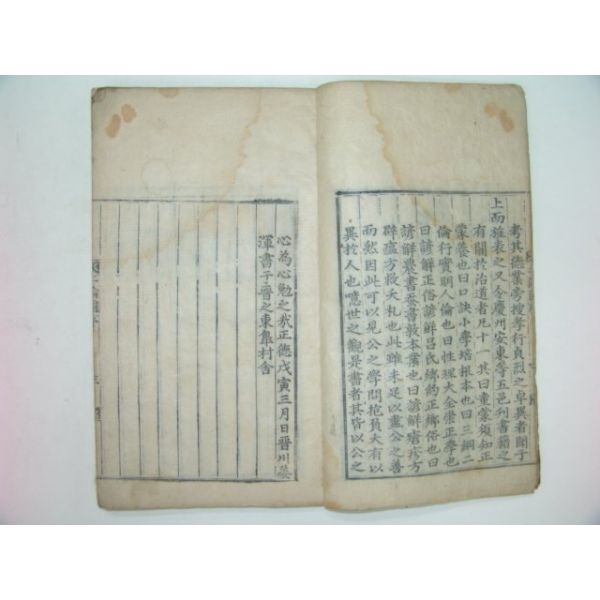 考其德業旁搜孝行貞烈之卓異者聞于
上而旌表之又令慶州安東等五邑刊書籍之
有關於治道者凡十一其曰童蒙須知正
蒙養也曰口訣小學培根本也曰三綱二
倫行實明人倫也曰性理大全崇正學也
曰諺解正俗諺解呂氏鄕約正鄕俗也曰
諺解農書蚕書敦本業也曰諺解瘡疹方
辟瘟方救夭札也此雖未足以盡公之善
而然因此可以見公之學問抱負大有以
異於人也噫世之觀是書者其皆以公之
心為心勉之哉正德戊寅三月日晉川姜
渾書于晉之東皐村舍